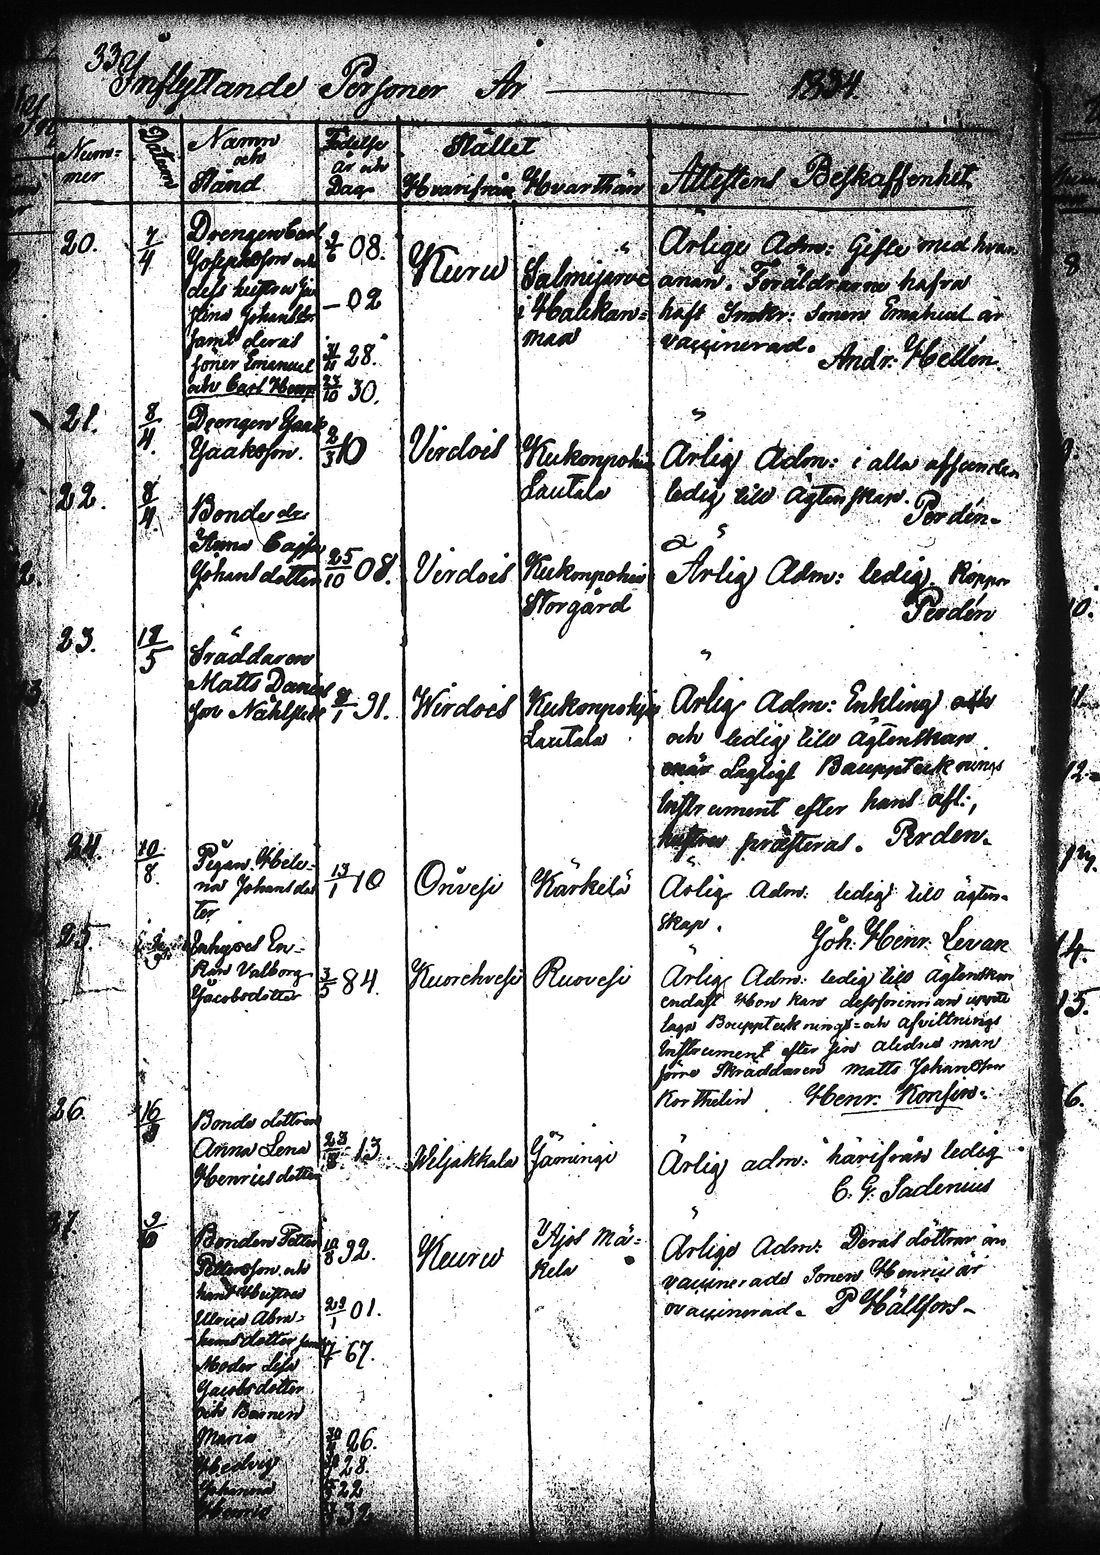 33
Inflyttande Personer År 1834
Num=
mer
Datum
Namn
och
Stånd
Födelse
år och
Dag
Stället
Hvarifrån Hvarthän
Attestens Beskaffenhet
20. 7/4
Drengen Carl
Josephsson och
dess hustru
Johansdr
samt deras
söner Emanuel
och Carl Henr
2/6 08.
— 02
28.
23/10 30.
Keuru
Salmijervi
i Haukan=
maa
Ärlige Adm: Gifte med hvar
anan. Föräldrarna hafva
haft Smkr: Sonen Emanuel är
vaccinerad.
Andr: Hellén.
21. 8/4.
Drengen Jaak
Jaaksson.
2/3 10
Virdois
Kukonpohia
Lautala
Ärlig Adm: i alla affeenden
ledig till ägtenskap.
Perdén.
22. 8/4.
Bonde dr
Stina Cajsa
Johans dotter
25/10 08.
Virdois
Kukonpohia
Storgård
Ärlig Adm: ledig. Koppor
Perdén
23. 18/5
Sräddaren
Matts Daniels
son Nählstedt
8/1 91.
Wirdois
Kukonpohja
Lautala
Ärlig Adm: Enkling
och ledig till ägtenskap
när Lagligt Bouppteknings
Instrument efter hans afl:,
hustru præsteras. Perden.
24. 10/8.
Pigan Hele-
na Johansdot
ter
13/1 10
Orivesi
Kärkelä
Ärlig Adm: ledig till ägten-
skap.
Joh. Henr. Levan
25.
Inhyses En-
kan Valborg
Jacobsdotter
3/5 84.
Kuorehvesi
Ruovesi
Ärlig Adm: ledig till Ägtenskap
endast Hon kan dessförinnan uppte
Lagn Bouppteknings= och afvittrings
Instrument efter sin aledne man
förre Skräddaren Matts Johansson
Korthelin Henr. Konsin.
26. 16/9
Bonde dottren
Anna Lena
Henricsdotter
28/8. 13.
Wiljakkala
Jäminge
Ärlig adm: härifrån ledig
C. G. Sadenius
27. 9/10
Bonden Petter
Pettersson och
hans Hustru
Ulrica Abra-
hams dotter samt
Moder Lisa
Jacobsdotter
och Barnen
Maria
Hedvig
Johanna
Henric
10/8 92.
29/1 01.
7/7 67.
26.
28.
22
32
Keuru
Ylijos Mä-
kelä
Ärlige Adm: Deras döttrar än
vaccinerade Sonen Henric är
ovaccinerad. P Hällfors-